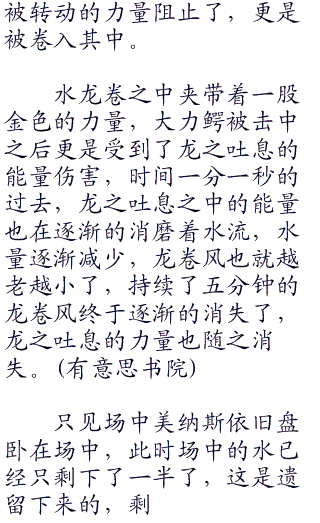 被转动的力量阻止了，更是
被卷入其中。
水龙卷之中夹带着一股
金色的力量，大力鳄被击中
之后更是受到了龙之吐息的
能量伤害，时间一分一秒的
过去，龙之吐息之中的能量
也在逐渐的消磨着水流，水
量逐渐减少，龙卷风也就越
老越小了，持续了五分钟的
龙卷风终于逐渐的消失了，
龙之吐息的力量也随之消
失。(有意思书院)
只见场中美纳斯依旧盘
卧在场中，此时场中的水已
经只剩下了一半了，这是遗
留下来的，剩